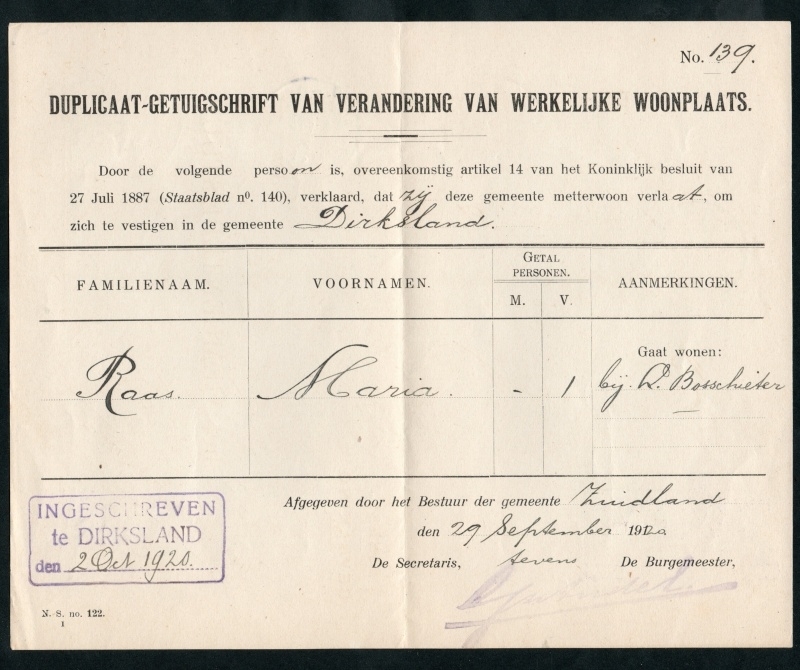 No. 139.
DUPLICAAT-GETUIGSCHRIFT VAN VERANDERING VAN WERKELIJKE WOONPLAATS.
Door de volgende persoon is, overeenkomstig artikel 14 van het Koninklijk besluit van
27 Juli 1887 (Staatsblad no. 140), verklaard, dat zij deze gemeente metterwoon verlaat, om
zich te vestigen in de gemeente Dirksland.
FAMILIENAAM.
VOORNAMEN.
GETAL
PERSONEN.
M.
V.
AANMERKINGEN.
Raas.
Maria.
-
1
Gaat wonen:
bij. D. Bosschieter
Afgegeven door het Bestuur der gemeente Zuidland
den 29 September 1920
De Secretaris, tevens De Burgemeester,
INGESCHREVEN
te DIRKSLAND
den 2 Oct 1920.
N.-S. no. 122.
1